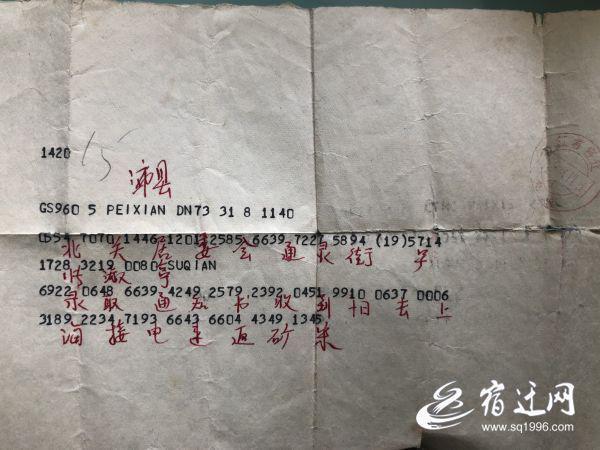 1420
15
沛县
GS960 5 PEIXIAN DN73 31 8 1140
0554 7070 1446 1201 2585 6639 7227 5894 (19)5714
北关居委会通 街 号
1728 3219 0080 SUQIAN
张淑亭
6922 0648 6639 4249 2579 2392 0451 9910 0637 0006
录取通知书收到 10日去上
3189 2234 7193 6643 6604 4349 1345
海接电速返
宿迁网
www.sq1996.com